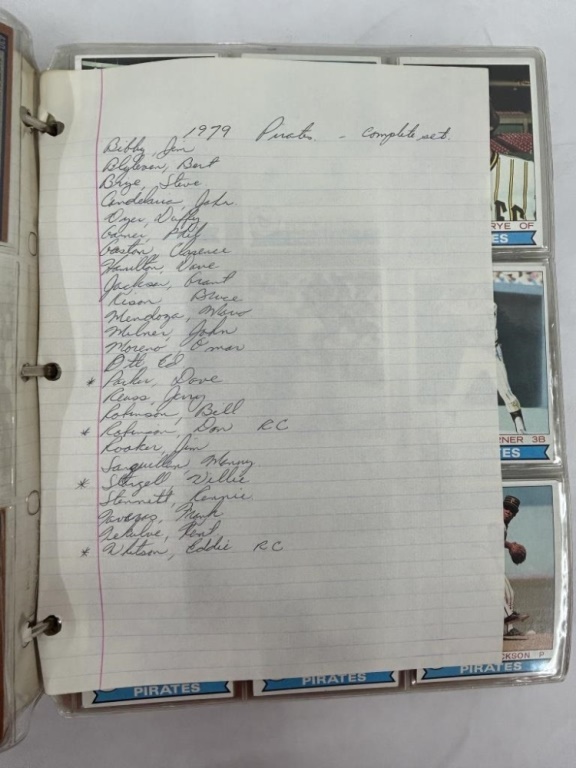 1979 Pirates - complete set.
Bibby, Jim
Blyleven, Bert
Brye, Steve
Candelaria, John
Dyer, Duffy
Garner, Phil
Gaston, Clarence
Hamilton, Dave
Jackson, Grant
Kison, Bruce
Mendoza, Mario
Milner, John
Moreno, Omar
Ott, Ed
* Parker, Dave
Reuss, Jerry
Robinson, Bill
* Robinson, Don RC
Rooker, Jim
Sanguillen, Manny
* Stargell, Willie
Stennett, Rennie
Taveras, Frank
Tekulve, Kent
* Whitson, Eddie RC
RYE OF
ES
RNER 3B
ES
CKSON P
PIRATES
PIRATES
PIRATES